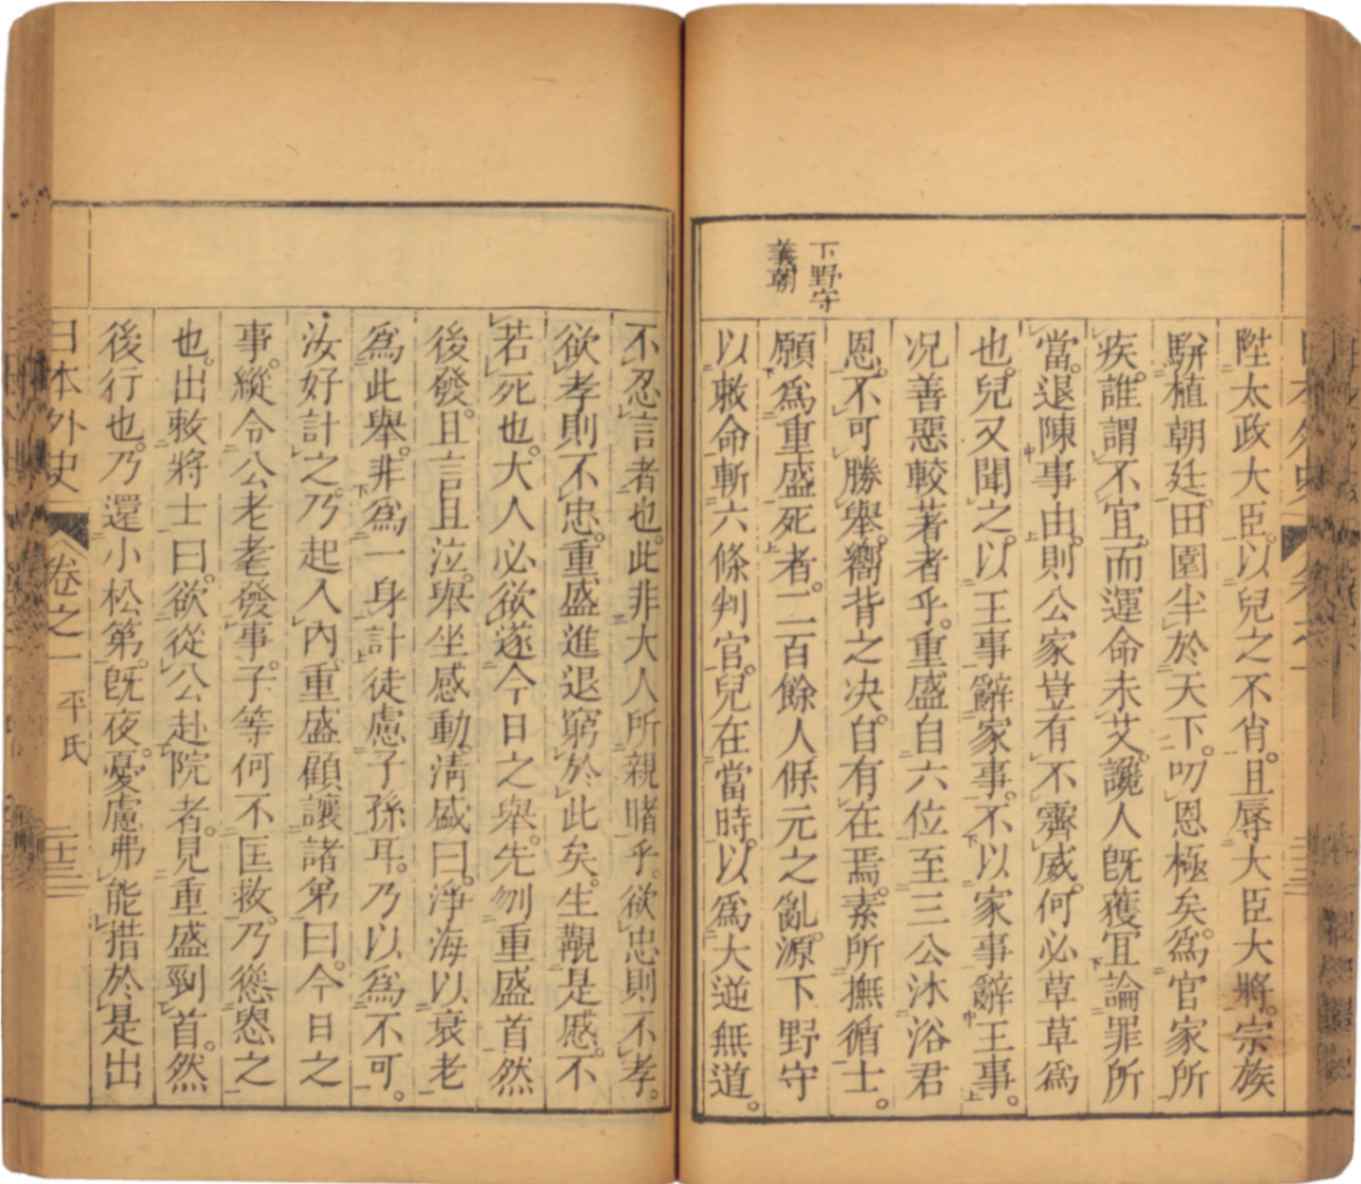 陞太政大臣。以兒之不肖。且辱大臣大將。宗族
駢植朝廷。田園半於天下。叨恩極矣。爲官家所
疾。誰謂不宜。而運命未艾。讒人既獲。宜論罪所
當。退陳事由。則公家豈有不霽威。何必草草爲
也。兒又聞之。以王事辭家事。不以家事辭王事。
況善惡較著者乎。重盛自六位至三公。沐浴君
恩。不可勝舉。嚮背之決。自有在焉。素所撫循士。
願爲重盛死者。二百餘人。保元之亂。源下野守
以敕命斬六條判官。兒在當時。以爲大逆無道。
下野守
義朝
不忍言者也。此非大人所親睹乎。欲忠則不孝。
欲孝則不忠。重盛進退窮於此矣。生覯是慼。不
若死也。大人必欲遂今日之舉。先刎重盛首。然
後發。且言且泣。舉坐感動。淸盛曰。淨海以衰老
爲此舉。非爲一身計。徒慮子孫耳。乃以爲不可。
汝好計之。乃起入內。重盛顧讓諸弟曰。今日之
事。縱令公老耄發事。子等何不匡救。乃慫恿之
也。出敕將士曰。欲從公赴院者。見重盛剄首。然
後行也。乃還小松第。既夜。憂慮弗能措。於是出
日本外史
卷之一
平氏
二十三